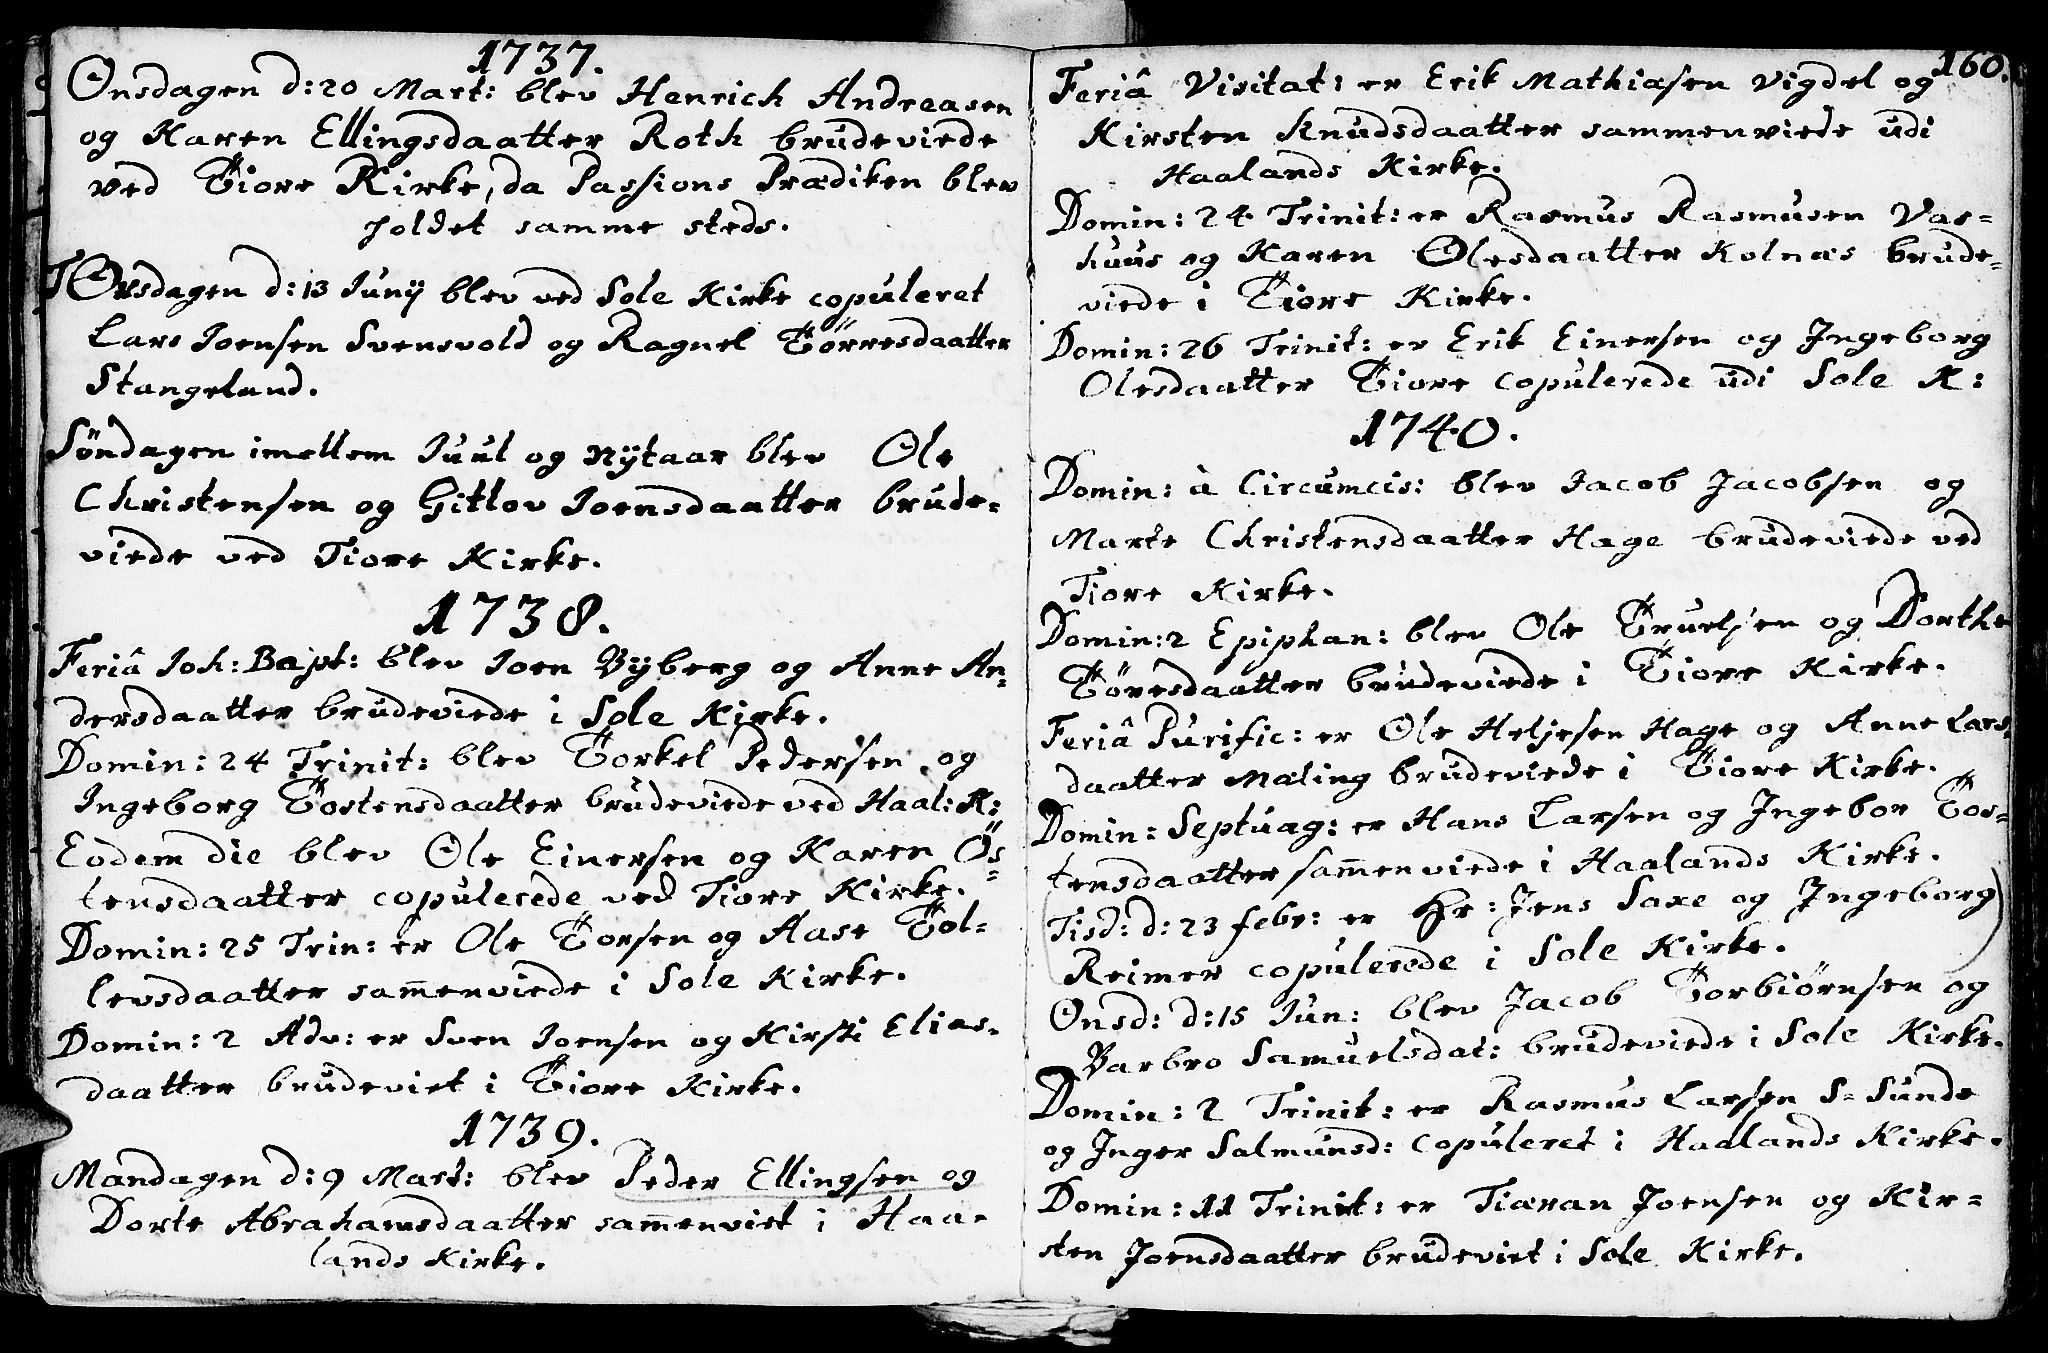 1737.
Onsdagen d: 20 Mart: blev Henrich Andreasen
og Karen Ellingsdaatter Roth brudeviede
ved Tiore Kirke, da Passions Prædiken blev
holdet samme steds.
Torsdagen d: 13 Junij blev ved Sole Kirke copuleret
Lars Joensen Svensvold og Ragnel Törresdaatter
Stangeland.
Söndagen imellem Juul og Nÿtaar blev Ole
Christensen og Gitlov Joensdaatter brude-
viede ved Tiore Kirke.
1738.
Feriâ Joh: Bapt: blev Joen Vÿberg og Anne An-
dersdaatter brudeviede i Sole Kirke.
Domin: 24 Trinit: blev Torkel Pedersen og
Ingeborg Tostensdaatter brudeviede ved Haal: K:
Eodem die blev Ole Einersen og Karen Ös-
tensdaatter copulerede ved Tiore Kirke.
Domin: 25 Trin: er Ole Torsen og Aase Tol-
levsdaatter sam̄enviede i Sole Kirke.
Domin: 2 Adv: er Sven Joensen og Kirsti Elias-
daatter brudeviet i Tiore Kirke.
1739.
Mandagen d: 9 Mart: blev Peder Ellingsen og
Dorte Abrahamsdaatter sam̄enviet i Haa-
lands Kirke.
160.
Feriâ Visitat: er Erik Mathiasen Vigdel og
Kirsten Knudsdaatter sammenviede udi
Haalands Kirke.
Domin: 24 Trinit: er Rasmus Rasmusen Vas-
huus og Karen Olesdaatter Kolnæs brude-
viede i Tiore Kirke.
Domin: 26 Trinit: er Erik Einersen og Ingeborg
Olesdaatter Tiore copulerede udi Sole K:
1740.
Domin: à Circumcis: blev Jacob Jacobsen og
Marte Christensdaatter Hage brudeviede ved
Tiore Kirke.
Domin: 2 Epiphan: blev Ole Truelsen og Dorthe
Töresdaatter brudeviede i Tiore Kirke.
Feriâ Purific: er Ole Heljesen Hage og Anne Lars-
daatter Mæling brudeviede i Tiore Kirke.
Domin: Septuag: er Hans Larsen og Ingebor Tos-
tensdaatter sam̄enviede i Haalands Kirke.
Tisd: d: 23 febr: er Hr: Jens Saxe og Ingeborg
Reimer copulerede i Sole Kirke.
Onsd: d: 15 Jun: blev Jacob Torbiörnsen og
Barbro Samuelsdat: brudeviede i Sole Kirke.
Domin: 2 Trinit: er Rasmus Larsen S- Sunde
og Inger Salmunsd: copuleret i Haalands Kirke.
Domin: 11 Trinit: er Tiæran Joensen og Kir-
sten Joensdaatter brudeviet i Sole Kirke.